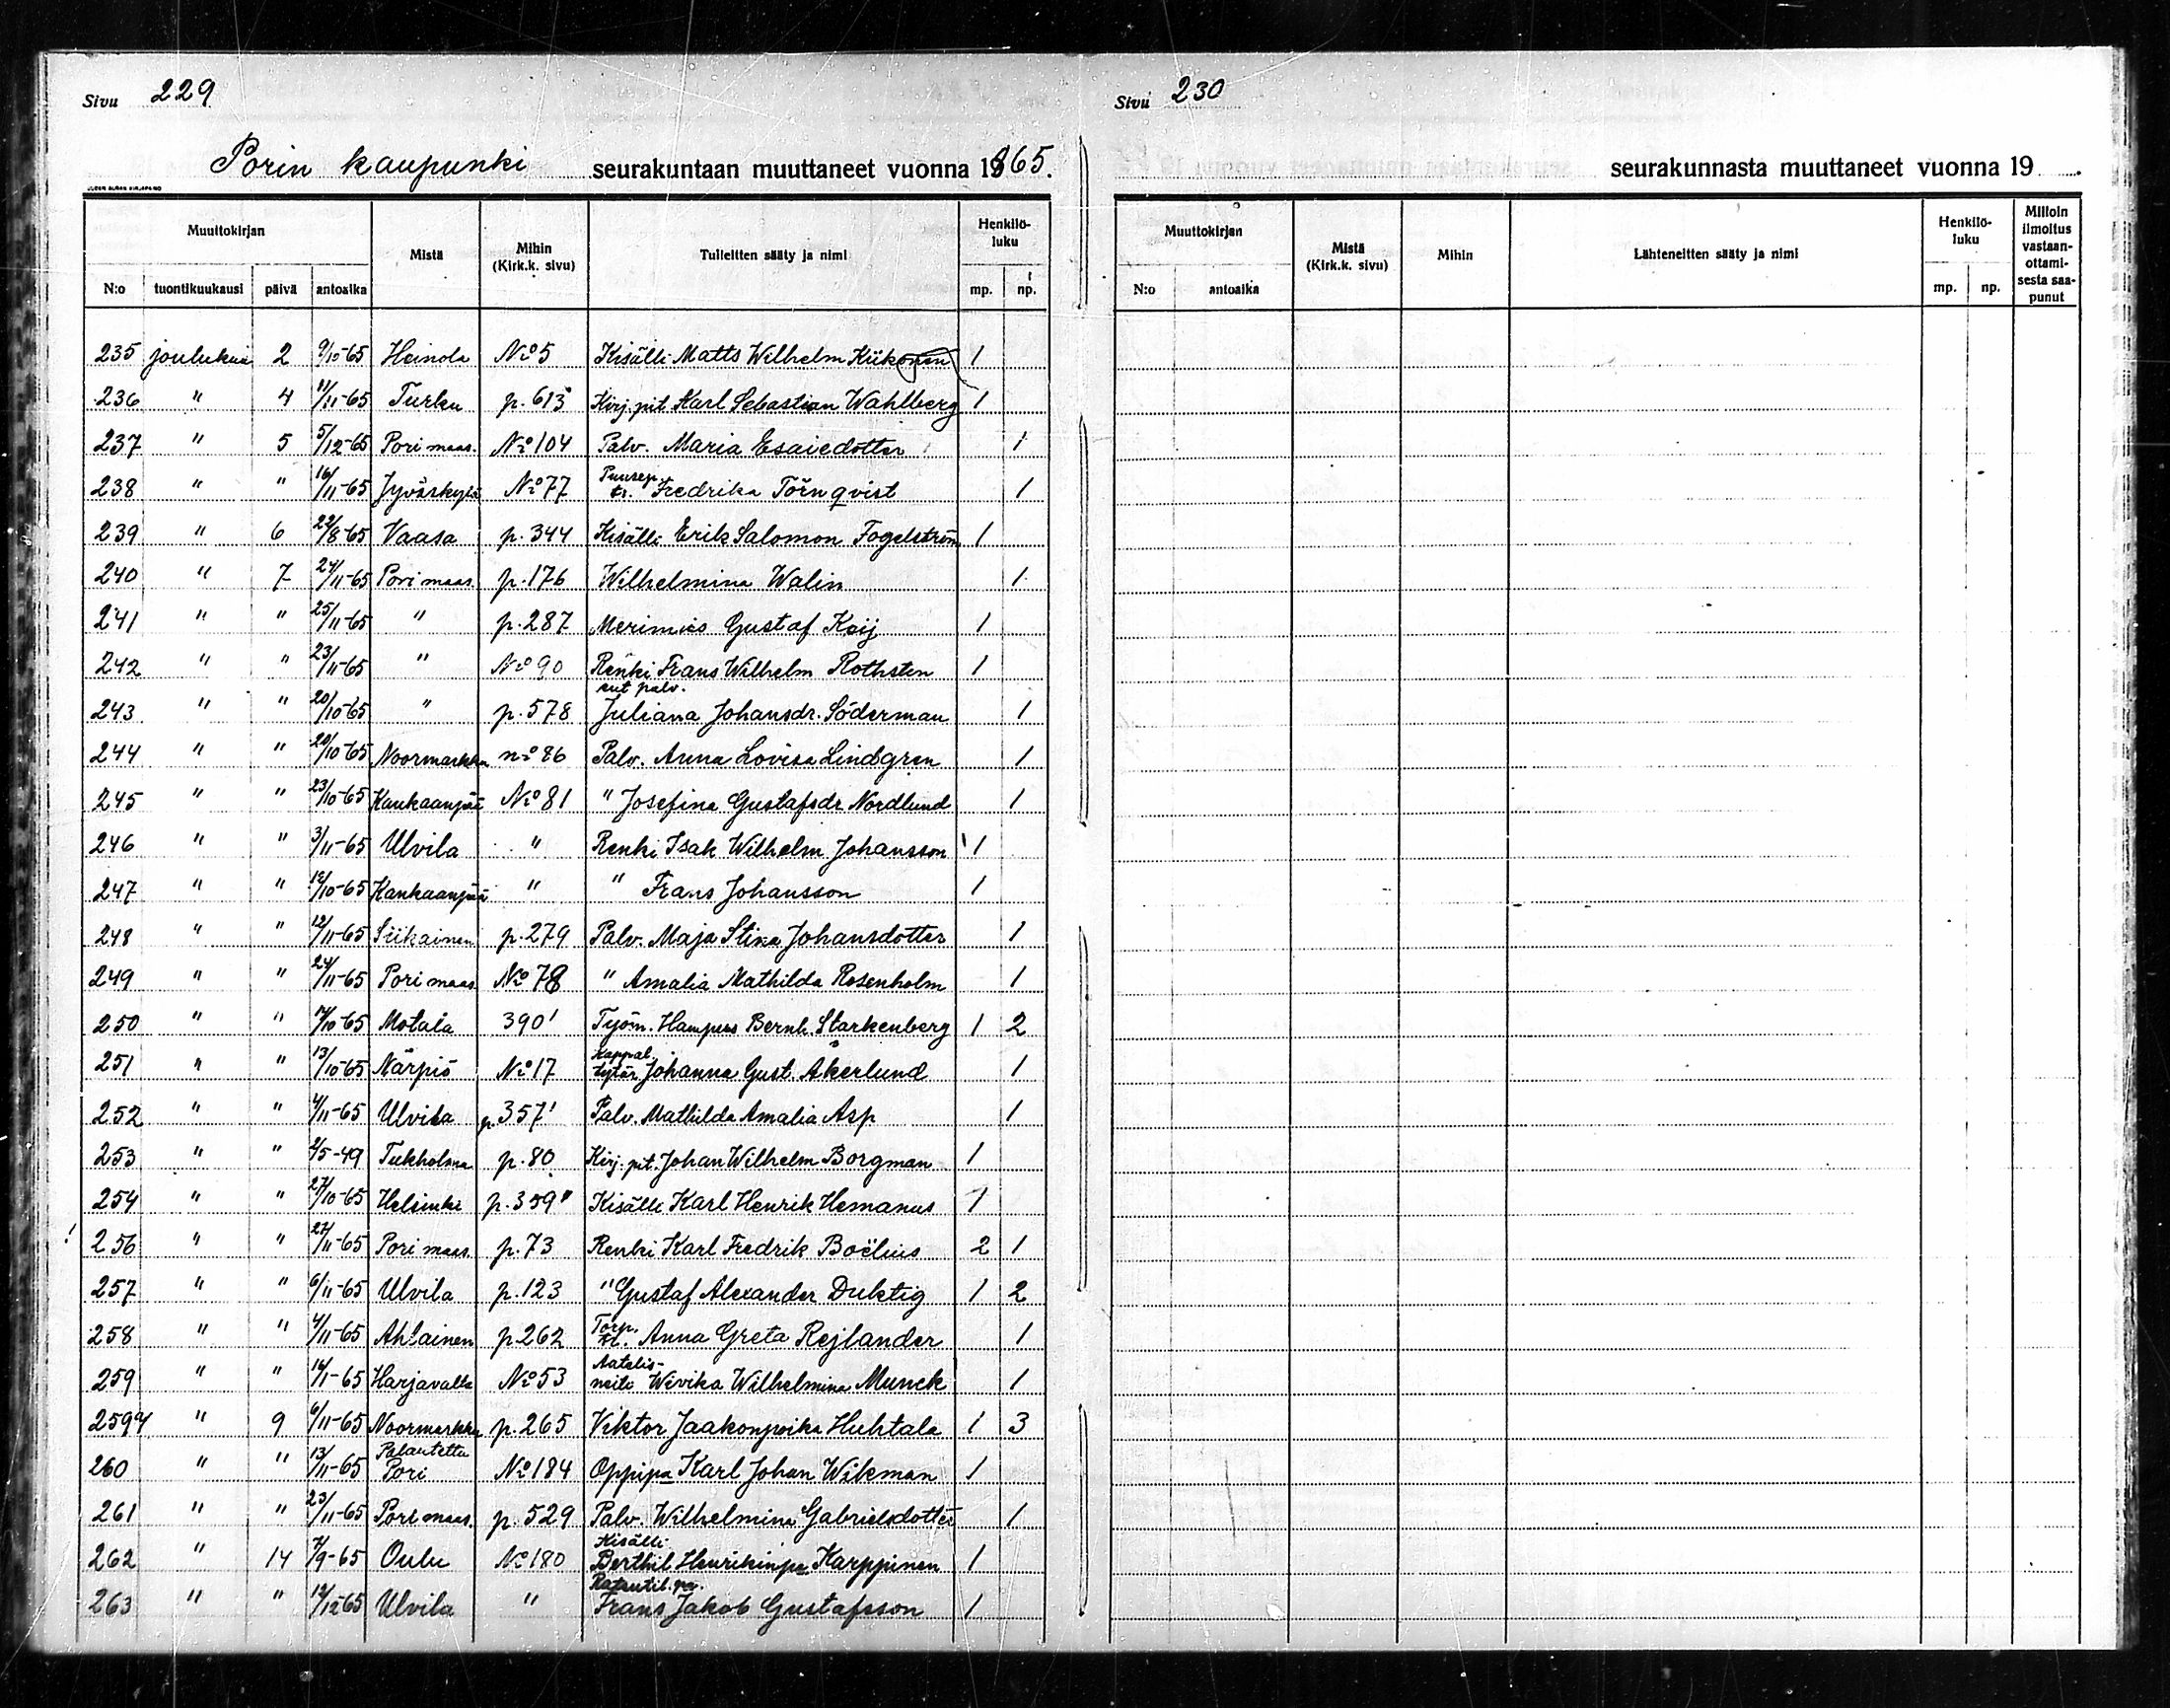 Sivu 229
Porin kaupunki seurakuntaan muuttaneet vuonna 1865.
Muuttokirjan Mistä Mihin (Kirk.k. sivu) Tulleitten sääty ja nimi Henkilö-luku
N:o tuontikuukausi päivä antoaika mp. np.
235 joulukuu 2 9/10-65 Heinola No 5 Kisälli Matts Wilhelm Kiikonen 1
236 " 4 11/11-65 Turku p. 613 Kirj. pit Karl Sebastian Wahlberg 1
237 " 5 5/12-65 Pori maas. No 104 Palv. Maria Esaiedotter 1
238 " " 16/11-65 Jyväskylä No 77 Puusep. tr. Fredrika Törnqvist 1
239 " 6 22/8-65 Vaasa p. 344 Kisälli Erik Salomon Fogelström 1
240 " 7 24/11-65 Pori maas. p. 176 Wilhelmina Walin 1
241 " " 25/11-65 " p. 287 Merimies Gustaf Koij 1
242 " " 23/11-65 " No 90 Renki Frans Wilhelm Rothsten 1
243 " " 20/10-65 " p. 578 ent palv. Juliana Johansdr. Söderman 1
244 " " 20/10-65 Noormarkku no 86 Palv. Anna Lovisa Lindgren 1
245 " " 23/10-65 Kankaanpää No 81 " Josefina Gustafsdr Nordlund 1
246 " " 3/11-65 Ulvila " Renki Isak Wilhelm Johansson 1
247 " " 12/10-65 Kankaanpää " " Frans Johansson 1
248 " " 12/11-65 Siikainen p. 279 Palv. Maja Stina Johansdotter 1
249 " " 24/11-65 Pori maas. No 78 " Amalia Mathilda Rosenholm 1
250 " " 17/10-65 Motala 390' Työm. Hampus Bernh. Starkenberg 1 2
251 " " 13/10-65 Närpiö No 17 Kappal. tytär Johanna Gust. Åkerlund 1
252 " " 4/11-65 Ulvila p. 357' Palv. Mathilda Amalia Asp 1
253 " " 2/5-49 Tukholma p. 80 Kirj. pit. Johan Wilhelm Borgman 1
254 " " 27/10-65 Helsinki p. 359" Kisälli Karl Henrik Hemanus 1
! 256 " " 27/11-65 Pori maas. p. 73 Renki Karl Fredrik Boëlius 2 1
257 " " 6/11-65 Ulvila p. 123 " Gustaf Alexander Duktig 1 2
258 " " 4/11-65 Ahlainen p. 262 Torp. Anna Greta Rejlander 1
259 " " 16/1-65 Harjavalta No 53 Aatelis-neito Wevika Wilhelmina Munck 1
259 9 6/11-65 Noormarkku p. 265 Viktor Jaakonpoika Huhtala 1 3
260 " " 13/11-65 Palautettu Pori No 184 Oppipa Karl Johan Wikman 1
261 " " 23/11-65 Pori maas. p. 529 Palv. Wilhelmina Gabrielsdotter 1
262 " 14 7/9-65 Oulu No 180 Kisälli Berthil Henrikinp. Karppinen 1
263 " " 12/12-65 Ulvila " Frans Jakob Gustafsson 1
Sivu 230
seurakunnasta muuttaneet vuonna 19 .
Muuttokirjan Mistä (Kirk.k. sivu) Mihin Lähteneitten sääty ja nimi Henkilö-luku Milloin ilmoitus vastaan-ottami-sesta saa-punut
N:o antoaika mp. np.